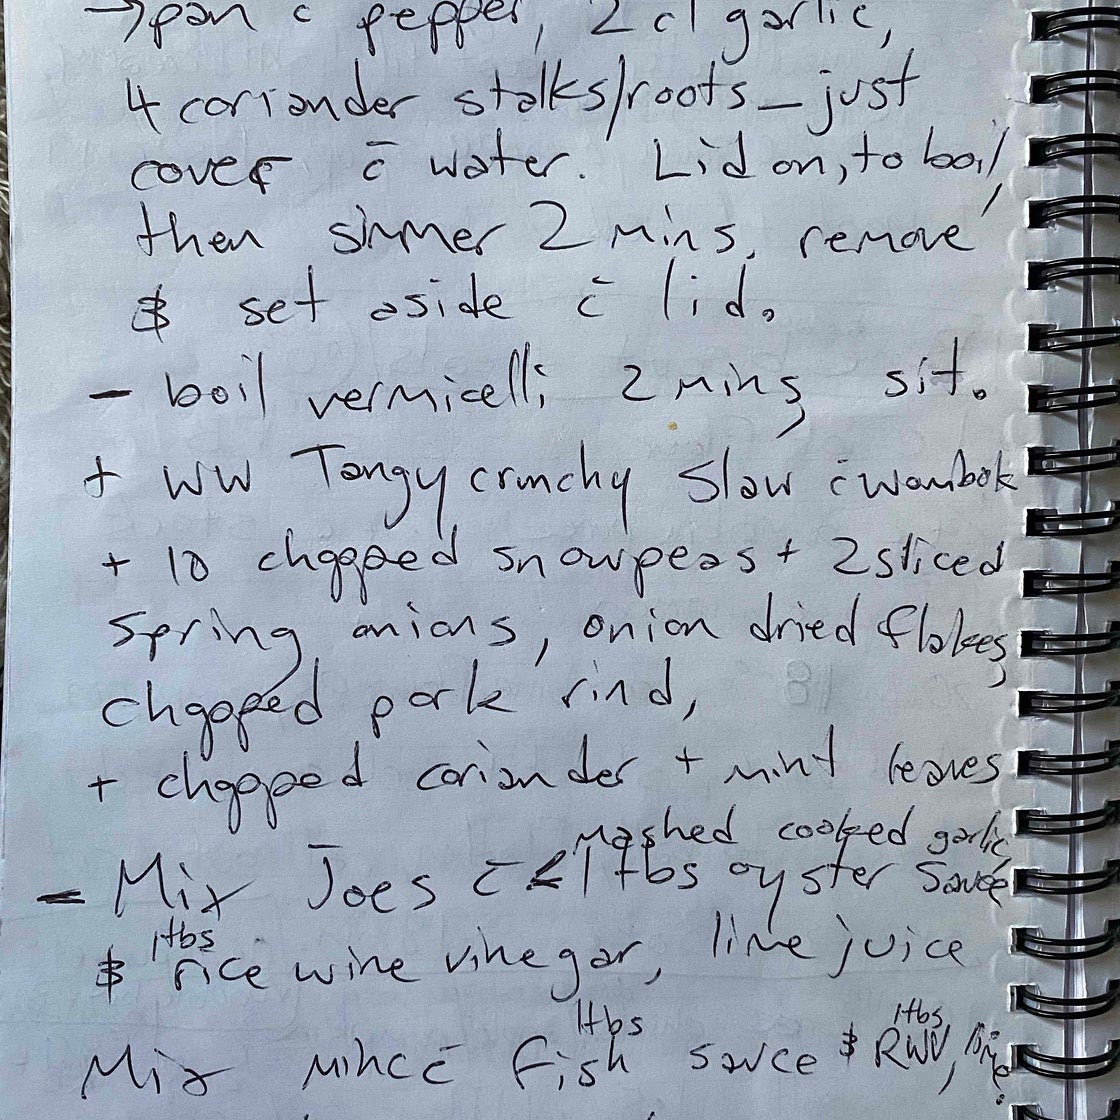 →pan c̄ pepper, 2 cl garlic,
4 coriander stalks/roots – just
cover c̄ water. Lid on, to boil,
then simmer 2 mins, remove
& set aside c̄ lid.
- boil vermicelli 2 mins, sit.
+ WW Tangy crunchy Slaw c̄ wombok
+ 10 chopped snowpeas + 2 sliced
spring onions, onion dried flakes,
chopped pork rind,
+ chopped coriander + mint leaves
mashed cooked garlic,
- Mix Joes c̄ 1 tbs oyster sauce
1tbs
& rice wine vinegar, lime juice
1tbs 1tbs
Mix mince c̄ fish sauce & RWV, lime